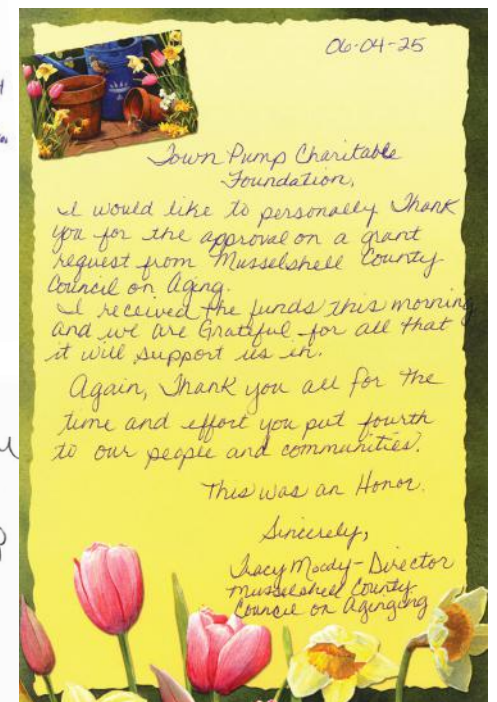 06-04-25
Town Pump Charitable
Foundation,
I would like to personally Thank
you for the approval on a grant
request from Musselshell County
Council on Aging.
I received the funds this morning
and we are Grateful for all that
it will support us in.
Again, Thank you all for the
time and effort you put fourth
to our people and communities.
This was an Honor.
Sincerely,
Tracy Moody - Director
Musselshell County
Council on Aginging